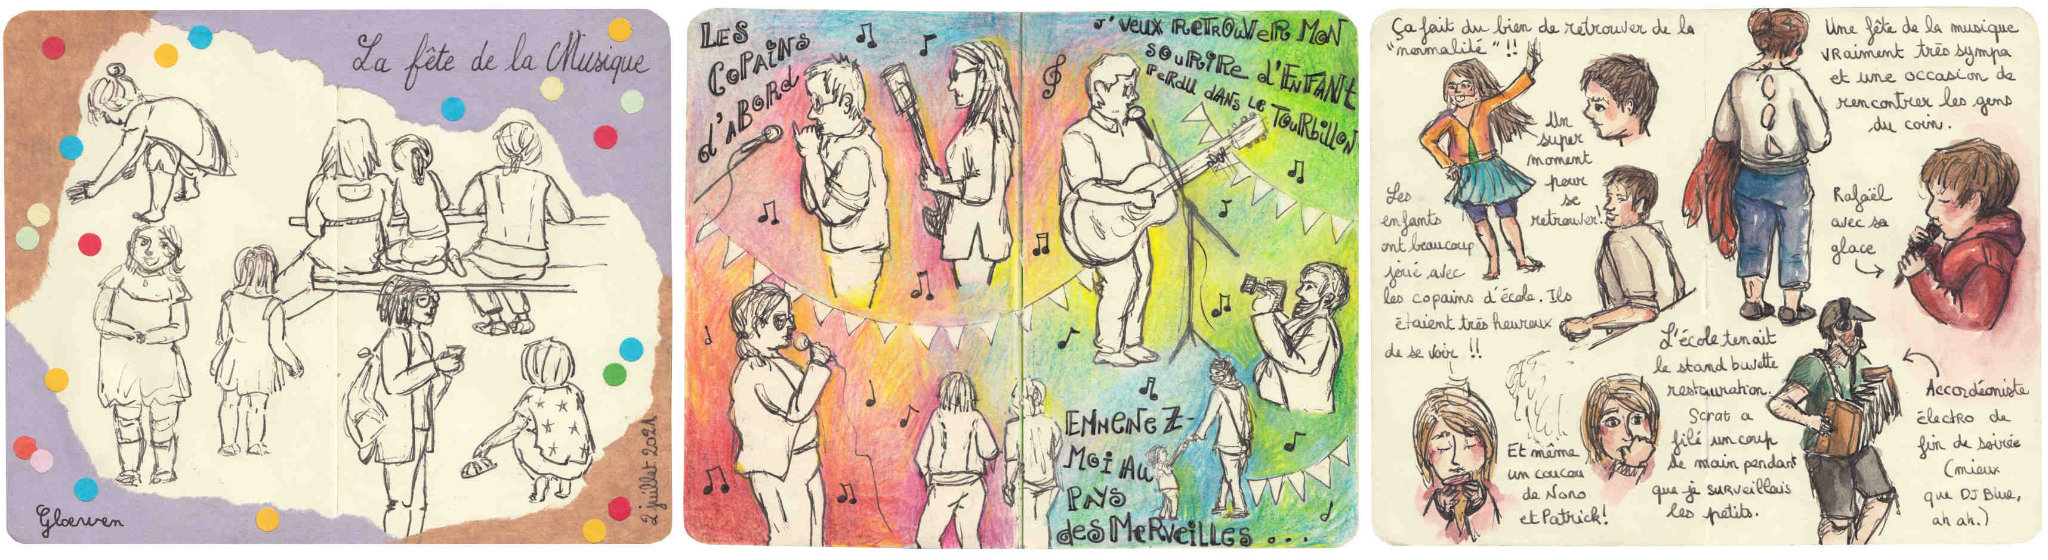 La fête de la Musique
Gloewen
2 juillet 2021
LES
COPAINS
d'ABORd
J'VEUX RETROUVER MON
SOURIRE d'ENFANT
PERDU DANS LE
TOURBILLON
EMMENEZ-
MOI AU
PAYS
des MERVEILLES...
Ça fait du bien de retrouver de la
"normalité" !!
Un
super
moment
pour
se
retrouver!
Les
enfants
ont beaucoup
joué avec
les copains d'école. Ils
étaient très heureux
de se voir !!
Une fête de la musique
vraiment très sympa
et une occasion de
rencontrer les gens
du coin.
Rafaël
avec sa
glace
L'école tenait
le stand buvette
restauration.
Scrat a
filé un coup
de main pendant
que je surveillais
les petits.
Et même
un coucou
de Nono
et Patrick!
Accordéoniste
électro de
fin de soirée
(mieux
que DJ Blue,
ah ah.)